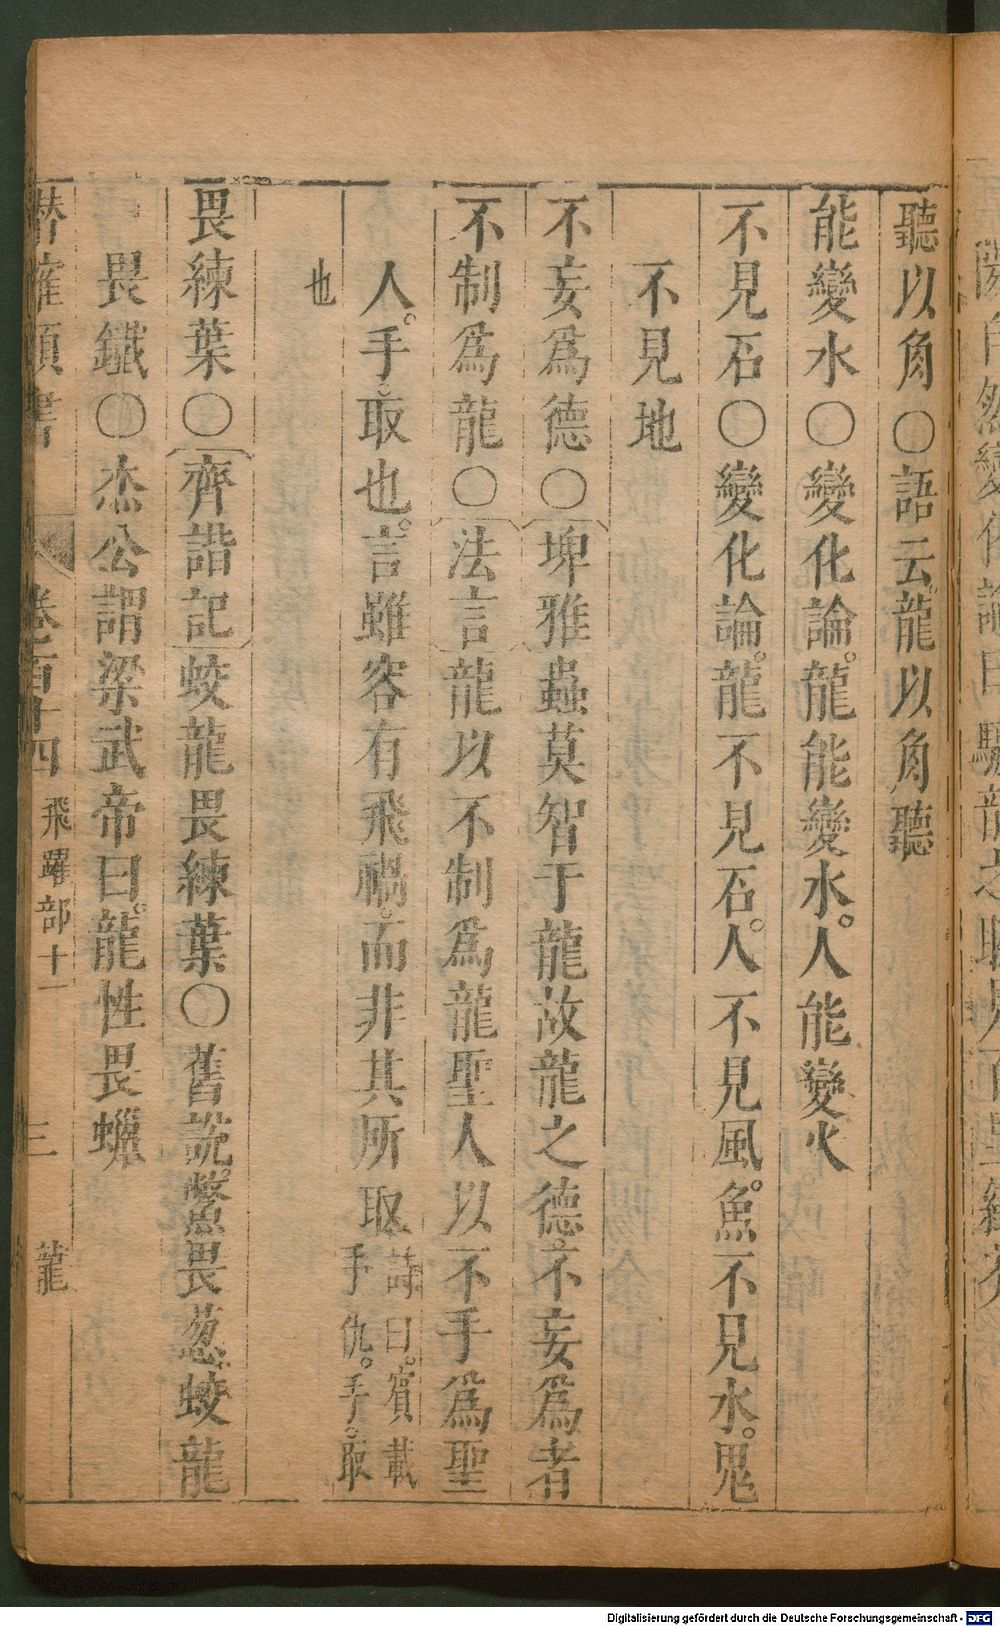 聽以角○語云龍以角聽
能變水○變化論。龍能變水。人能變火
不見石○變化論。龍不見石。人不見風。魚不見水。鬼
不見地
不妄爲德○埤雅蟲莫智于龍故龍之德。不妄爲者
不制爲龍○法言龍以不制爲龍聖人以不手爲聖
人。手。取也。言雖容有飛禍。而非其所取詩曰。賓載
手仇。手。取
也
畏練葉○齊諧記蛟龍畏練葉○舊說。鱉畏葱。蛟龍
畏鐵○杰公謂梁武帝曰。龍性畏蠟
潜確類書 卷百十四 飛躍部十一 三 龍
Digitalisierung gefördert durch die Deutsche Forschungsgemeinschaft - DFG